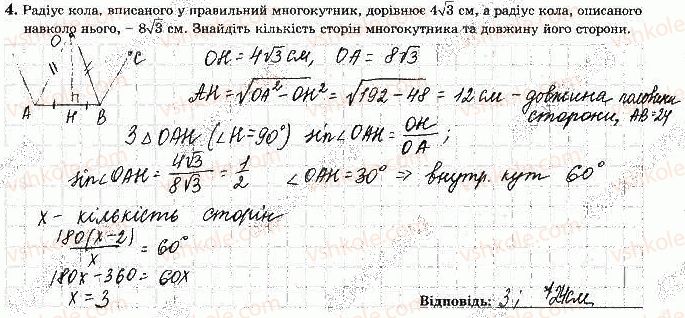 4. Радіус кола, вписаного у правильний многокутник, дорівнює 4√3 см, а радіус кола, описаного
навколо нього, – 8√3 см. Знайдіть кількість сторін многокутника та довжину його сторони.
O
C
A
H
B
OH = 4√3 см, OA = 8√3
AH = √OA² − OH² = √192 − 48 = 12 см – довжина половини
сторони, AB=24
З △OAH (∠H=90°) sin∠OAH = OH/OA ;
sin∠OAH = 4√3/8√3 = 1/2 ∠OAH = 30° ⇒ внутр. кут 60°
x – кількість сторін
180(x−2)/x = 60°
180x − 360 = 60x
x = 3
Відповідь: 3; 24см